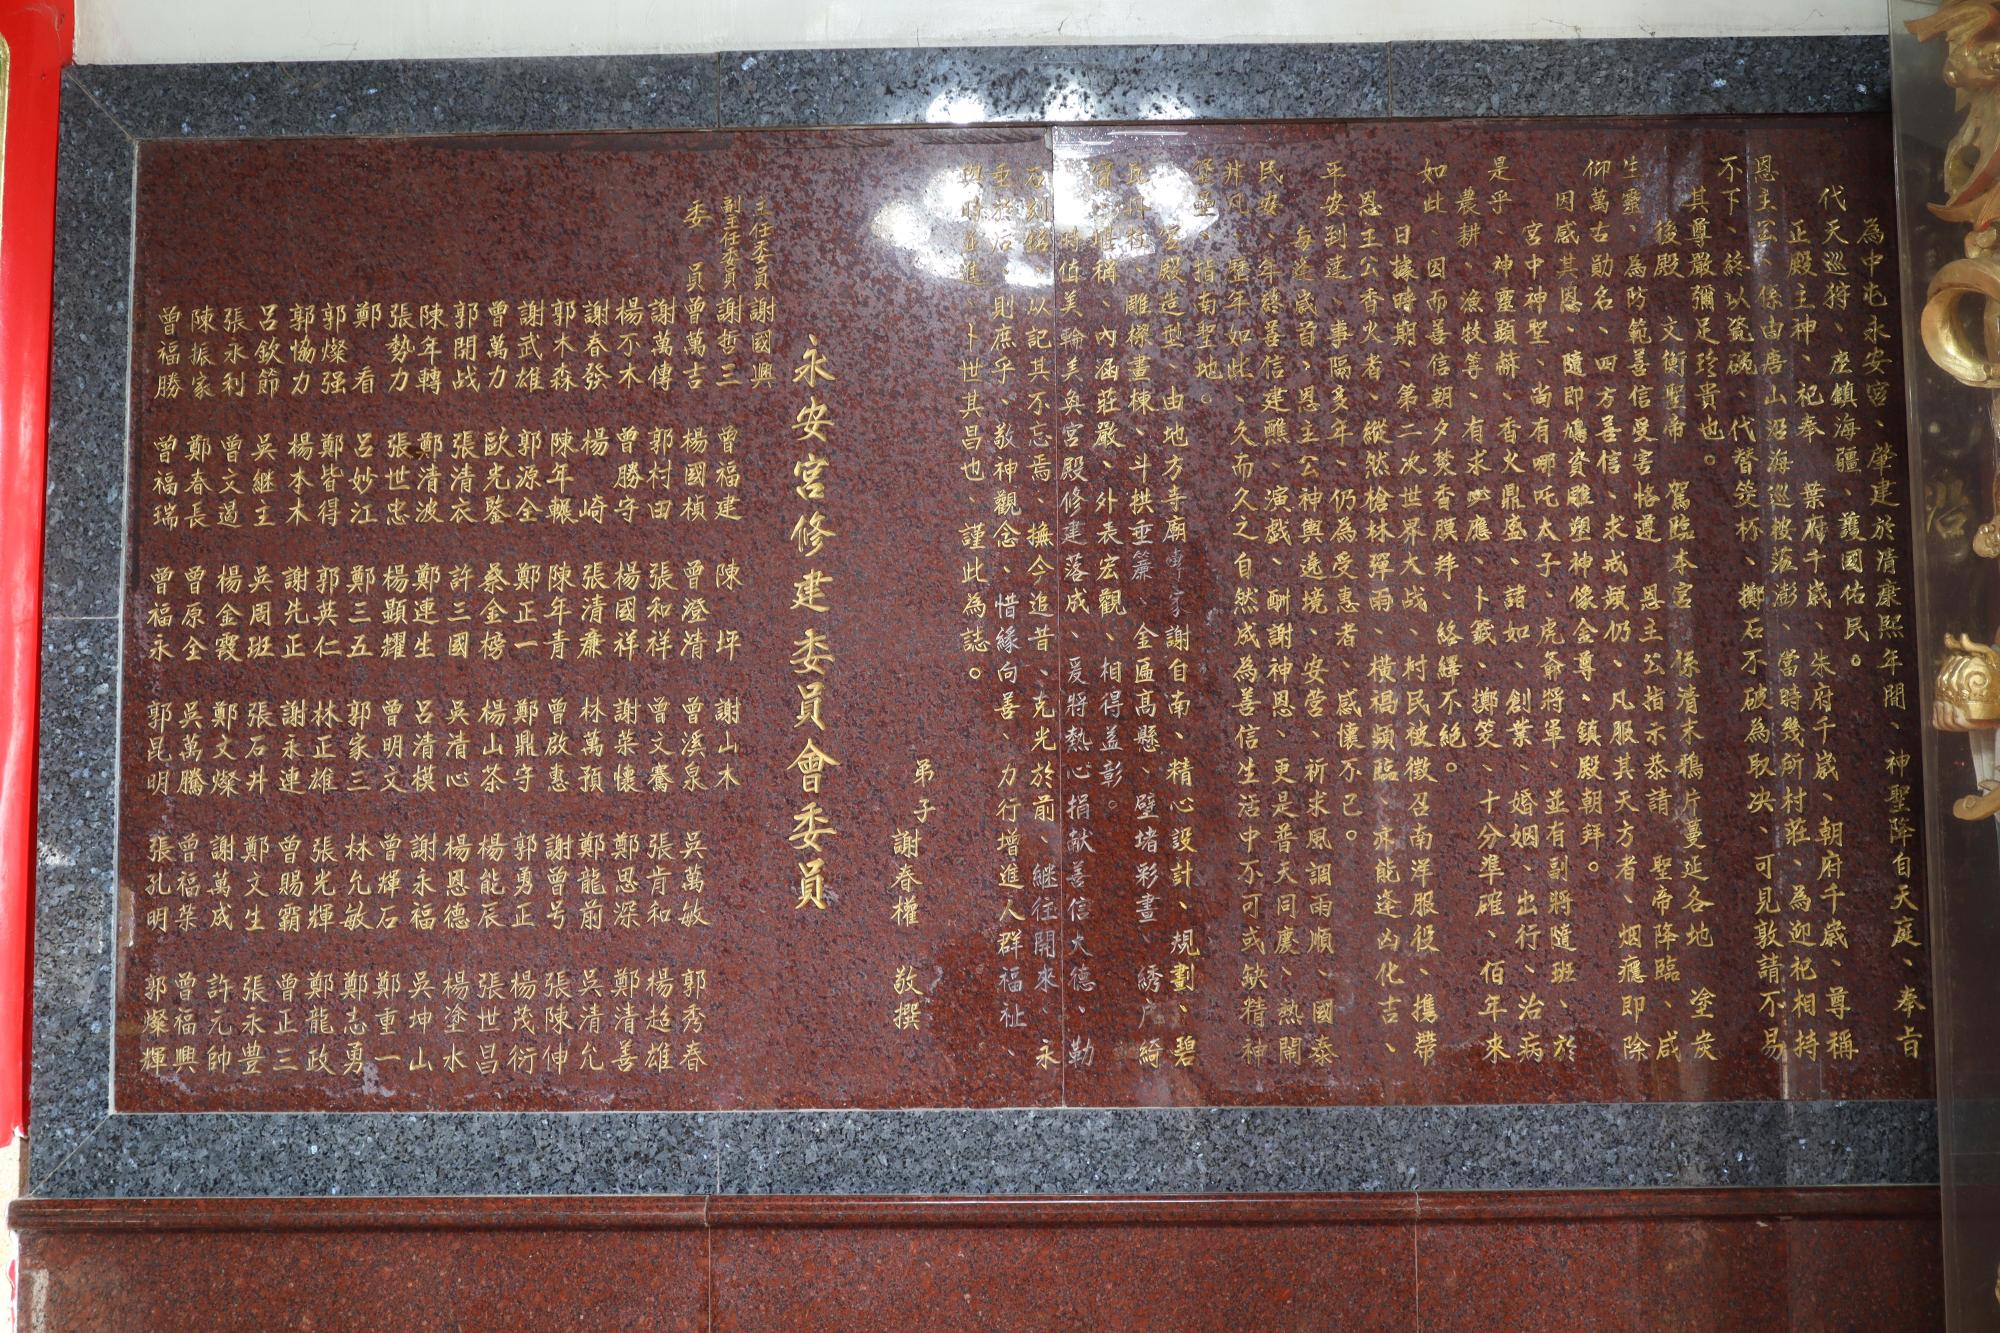 為中屯永安宮、肇建於清康熙年間、神聖降自天庭、奉旨
代天巡狩、座鎮海疆、護國佑民。
正殿主神、祀奉 葉府千歲、朱府千歲、朝府千歲、尊稱
恩主公、係由唐山沿海巡按蒞澎、當時幾所村莊、為迎祀相持
不下、終以瓷碗、代替筊杯、擲石不破為取決、可見敦請不易
其尊嚴彌足珍貴也。
後殿 文衡聖帝 駕臨本宮、係清末鴉片蔓延各地 塗炭
生靈、為防範善信受害恪遵 恩主公指示恭請 聖帝降臨、咸
仰萬古勛名、四方善信、求戒頻仍、凡服其天方者、烟癮即除
因感其恩、隨即鳩資雕塑神像金尊、鎮殿朝拜。
宮中神聖、尚有哪吒太子、虎爺將軍、並有副將隨班、於
是乎、神靈顯赫、香火鼎盛、諸如、創業、婚姻、出行、治病
農耕、漁牧等、有求必應、卜籤、擲筊、十分準確、佰年來
如此、因而善信朝夕焚香膜拜、絡繹不絕。
日據時期、第二次世界大战、村民被徵召南洋服役、攜帶
恩主公香火者、縱然槍林彈雨、橫禍頻臨、亦能逢凶化吉、
平安到達、事隔多年、仍為受惠者、感懷不已。
每逢歲首、恩主公神輿遶境、安營、祈求風調雨順、國泰
民安、年諧善信建醮、演戲、酬謝神恩、更是普天同慶、熱鬧
非凡、歷年如此、久而久之自然成為善信生活中不可或缺精神
堡壘、指南聖地。
宮殿造型、由地方寺廟專家謝自南、精心設計、規劃、碧
瓦丹柱、雕樑畫棟、斗栱垂簾、金匾高懸、壁堵彩畫、綉戶綺
窗、堪稱、內涵莊嚴、外表宏觀、相得益彰。
時值美輪美奐宮殿修建落成、爰將熱心捐献善信大德、勒
石刻銘、以記其不忘焉、撫今追昔、克光於前、継往開來、永
垂於后、則庶乎、敬神觀念、惜緣向善、力行增進人群福祉、
與時並進、卜世其昌也、謹此為誌。
弟子 謝春權 敬撰
永安宮修建委員會委員
主任委員謝國興
副主任委員謝哲三 曾福建 陳坪 謝山木
委員曾萬吉 楊國楨 曾澄清 曾溪泉 吳萬敏 郭秀春
謝萬傳 郭村田 張和祥 曾文騫 張肯和 楊超雄
楊不木 曾勝守 楊國祥 謝萊懷 鄭恩深 鄭清善
謝春發 楊崎 張清亷 林萬預 鄭龍前 吳清允
郭木森 陳年輾 陳年青 曾啟惠 謝曾号 張陳伸
謝武雄 郭源全 鄭正一 鄭鼎守 郭勇正 楊茂衍
曾萬力 歐光鑒 蔡金榜 楊山茶 楊能辰 張世昌
郭開战 張清衣 許三國 吳清心 楊恩德 楊塗水
陳年轉 鄭清波 鄭連生 呂清模 謝永福 吳坤山
張勢力 張世忠 楊顯耀 曾明文 曾輝石 鄭重一
鄭看 呂妙江 鄭三五 郭家三 林允敏 鄭志勇
郭燦强 鄭皆得 郭英仁 林正雄 張光輝 鄭龍政
郭恊力 楊本木 謝先正 謝永連 曾賜霸 曾正三
呂欽節 吳継主 吳周班 張石井 鄭文生 張永豊
張永利 曾文過 楊金霞 鄭文燦 謝萬成 許元帥
陳振家 鄭春長 曾原全 吳萬騰 曾福榮 曾福興
曾福勝 曾福瑞 曾福永 郭昆明 張孔明 郭燦輝